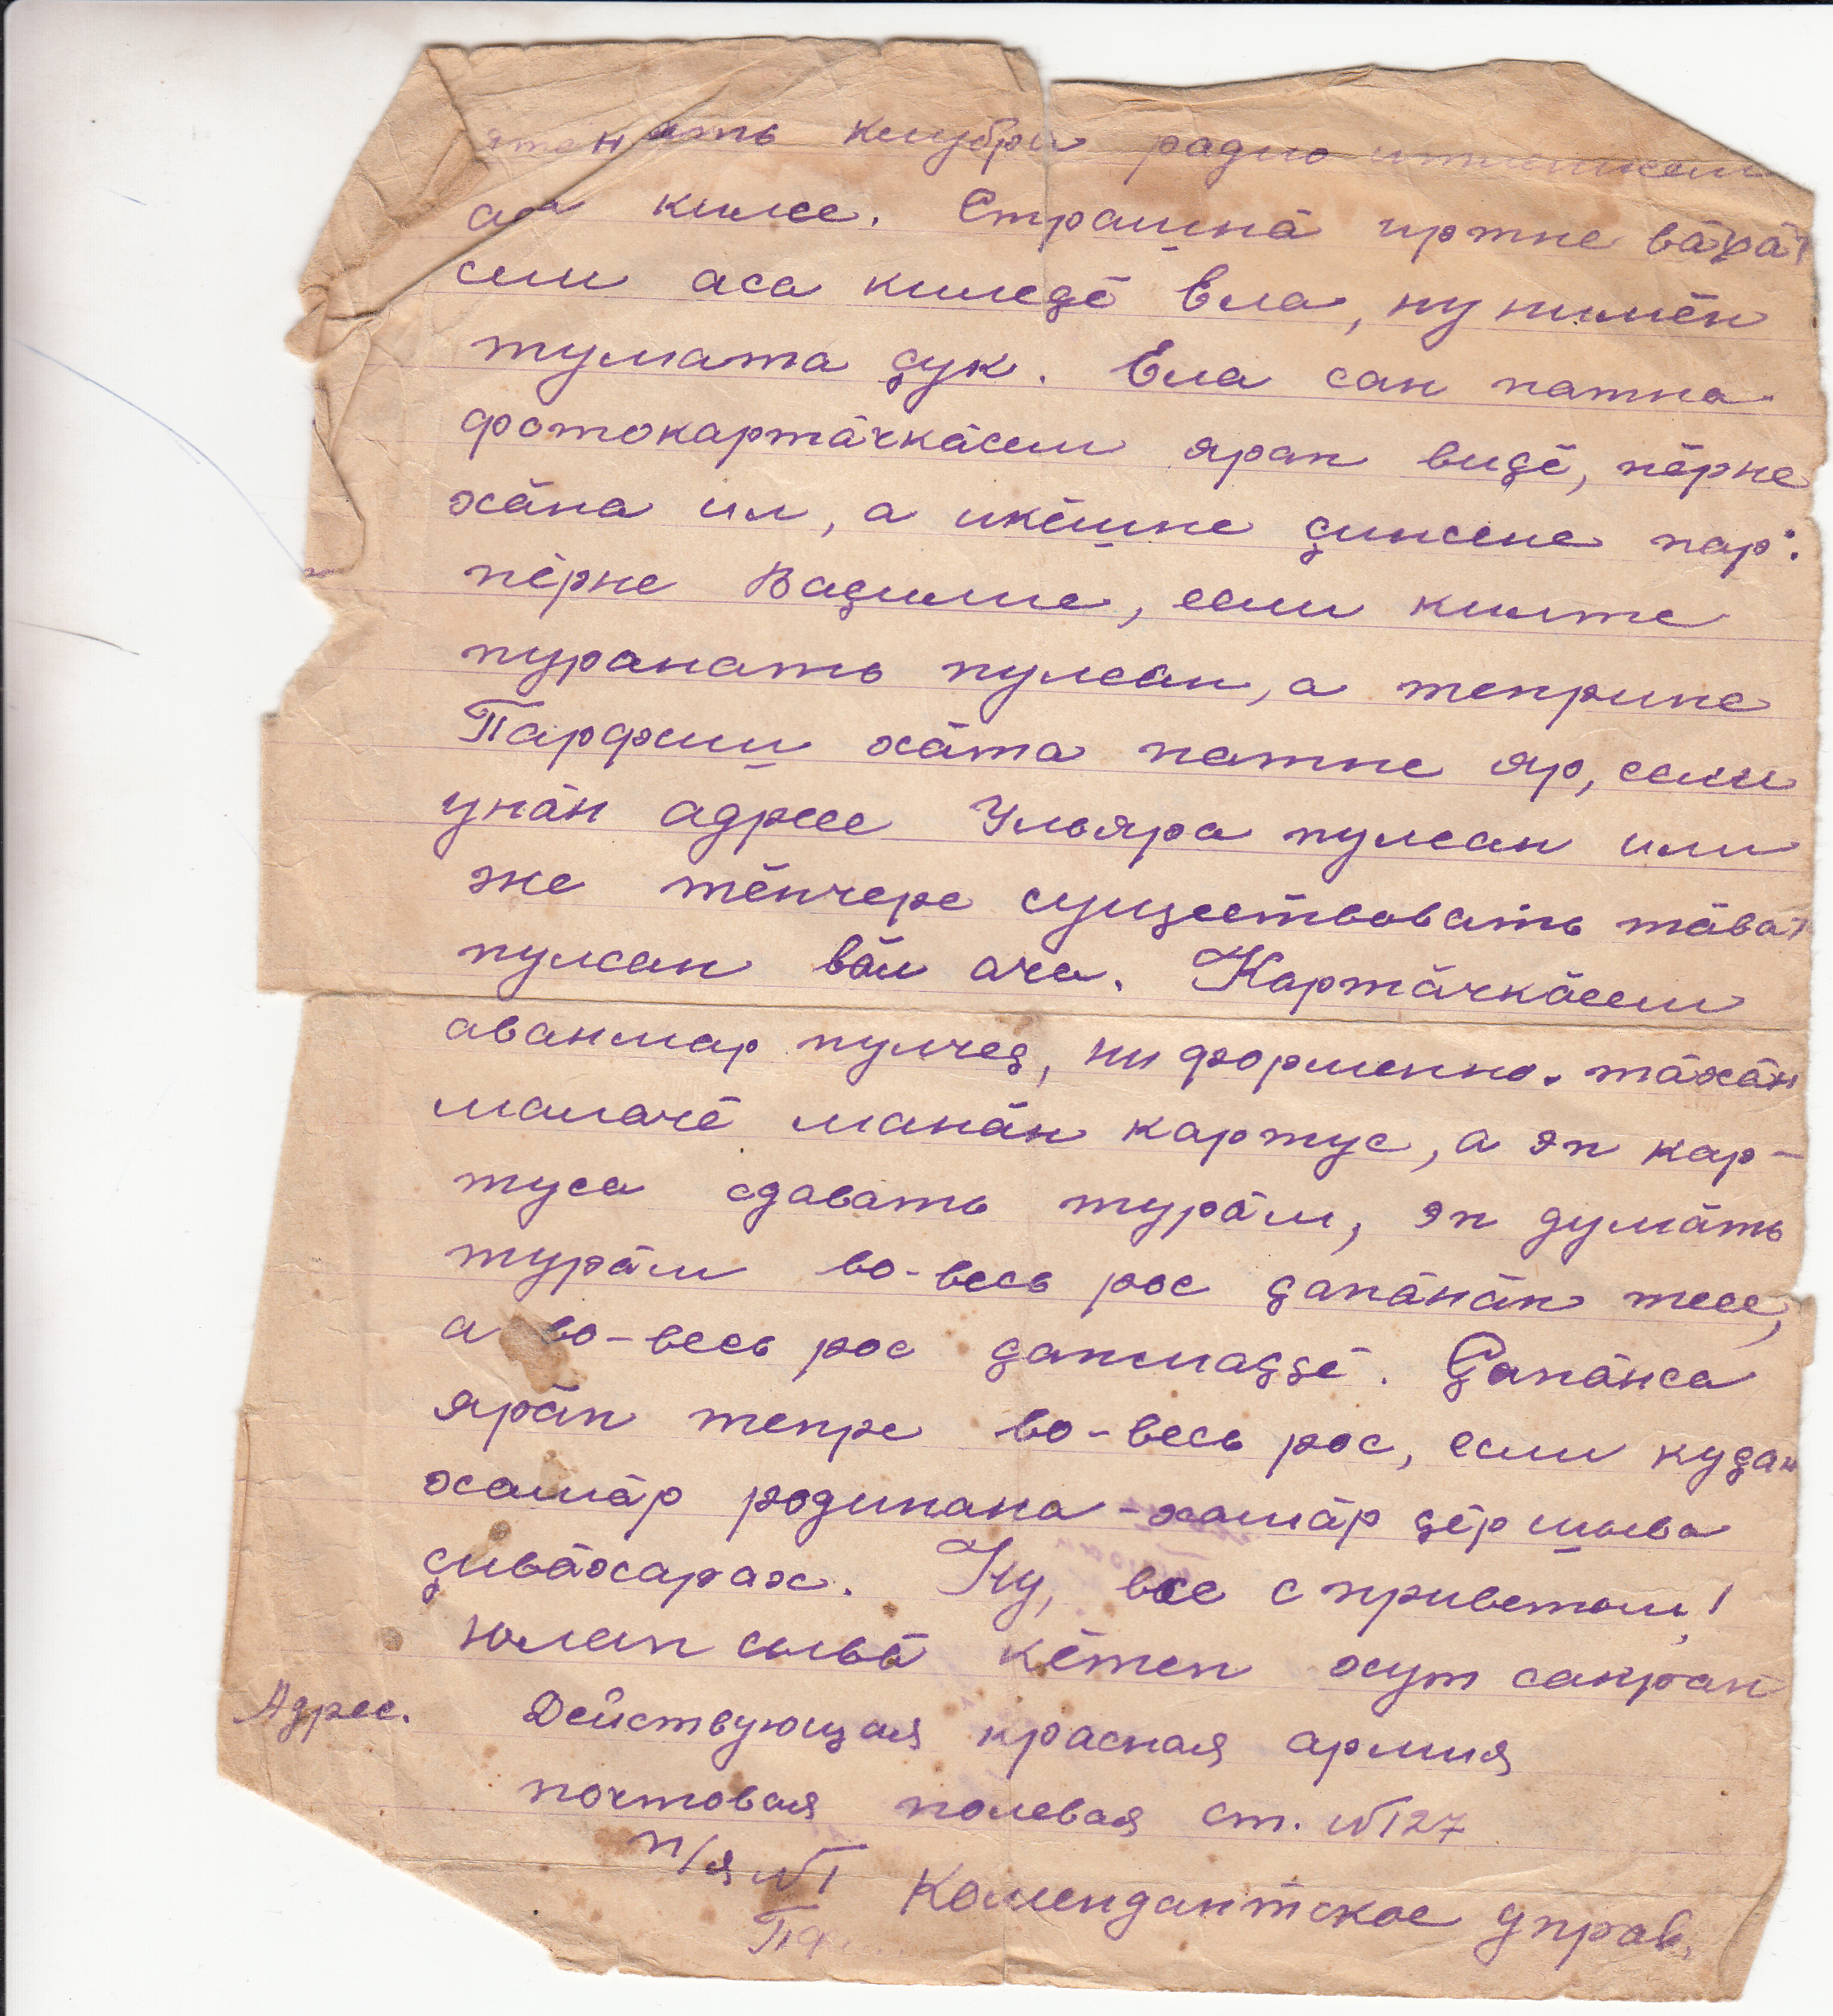 клубри радио
ак килсе. Страшнӑ иртне вӑхӑт
сем аса киледҫӗ Ела, ну нимӗн
тумата ҫук. Ела сан патна
фотокартӑчкӑсем ярап виҫӗ, пӗрне
хӑна ил, а иккӗшне ҫинсене пар:
пӗрне Ваҫишше, если килте
пуранать пулсан, а тепринe
Парфиш хӑта патне яр, если
унӑн адресе Ульяра пулсан или
же тӗнчере существовать тӑват
пулсан вӑл ача. Картӑчкӑсем
аванмар пулчеҫ, ни форменно. тӑхӑн
малачӗ манӑн картус, а эп кар-
туса сдавать турӑм, эп думӑть
турӑм во-весь рос ҫапӑнӑп тесе,
а во-весь рос ҫапмаҫҫӗ. Ҫапӑнса
ярӑп тепре во-весь рос, если куҫан
хамӑр родинана - хамӑр ҫӗршыва
ҫивӑхарах. Ну, все с приветом!
Юлап сывӑ кӗтеп хут санран
Адрес. Действующая красная армия
почтовая полевая ст. №127
п/я №1 Комендантское управ.